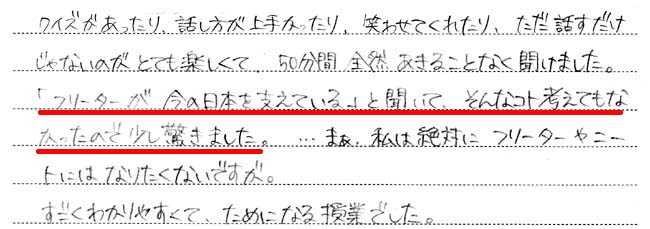 クイズがあったり、話し方が上手かったり、笑わせてくれたり、ただ話すだけ
じゃないのがとても楽しくて、50分間全然あきることなく聞けました。
「フリーターが今の日本を支えている」と聞いて、そんなコト考えてもな
かったので少し驚きました。…まぁ、私は絶対にフリーターやニー
トにはなりたくないですが。
すごくわかりやすくて、ためになる授業でした。